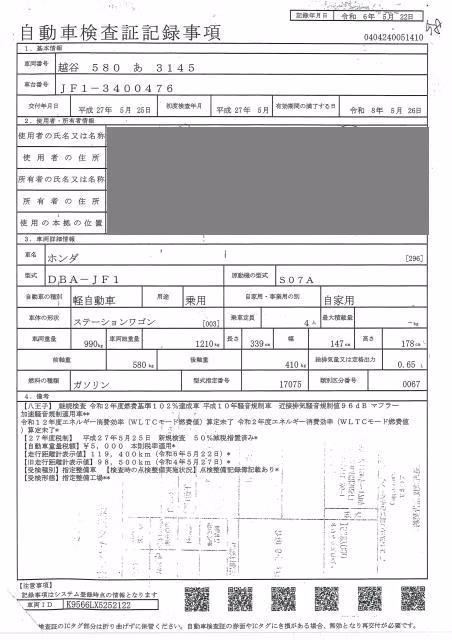 記録年月日 令和 6年 5月 22日
自動車検査証記録事項
0404240051410
1. 基本情報
車両番号 越谷 580 あ 3145
車台番号 JF1-3400476
交付年月日 平成 27年 5月 25日 初度検査年月 平成 27年 5月 有効期間の満了する日 令和 8年 5月 26日
2. 使用者・所有者情報
使用者の氏名又は名称
使用者の住所
所有者の氏名又は名称
所有者の住所
使用の本拠の位置
3. 車両詳細情報
車名 ホンダ [296]
型式 DBA-JF1 原動機の型式 S07A
自動車の種別 軽自動車 用途 乗用 自家用・事業用の別 自家用
車体の形状 ステーションワゴン [003] 乗車定員 4人 最大積載量 -kg
車両重量 990kg 車両総重量 1210kg 長さ 339cm 幅 147cm 高さ 178cm
前軸重 580kg 後軸重 410kg 総排気量又は定格出力 0.65 L
燃料の種類 ガソリン 型式指定番号 17075 類別区分番号 0067
4. 備考
【八王子】 継続検査 令和2年度燃費基準102%達成車 平成10年騒音規制車 近接排気騒音規制値96dB マフラー
加速騒音規制適用車**
令和12年度エネルギー消費効率(WLTCモード燃費値)算定未了 令和2年度エネルギー消費効率(WLTCモード燃費値
)算定未了*
【27年度税制】 平成27年5月25日 新規検査 50%減税措置済み*
【自動車重量税額】¥5,000 本則税率適用*
【走行距離計表示値】119,400km(令和6年5月22日)*
【旧走行距離計表示値】98,500km(令和4年5月27日)*
【受検種別】指定整備車 【検査時の点検整備実施状況】点検整備記録簿記載あり*
【受検形態】指定整備工場**
【注意事項】
記録事項はシステム登録時点の情報となります
車両ID K9566LX5252122
検査証のICタグ部分は折り曲げずに保管ください。自動車検査証の券面やICタグに色損がある場合、無効となり再交付が必要です。